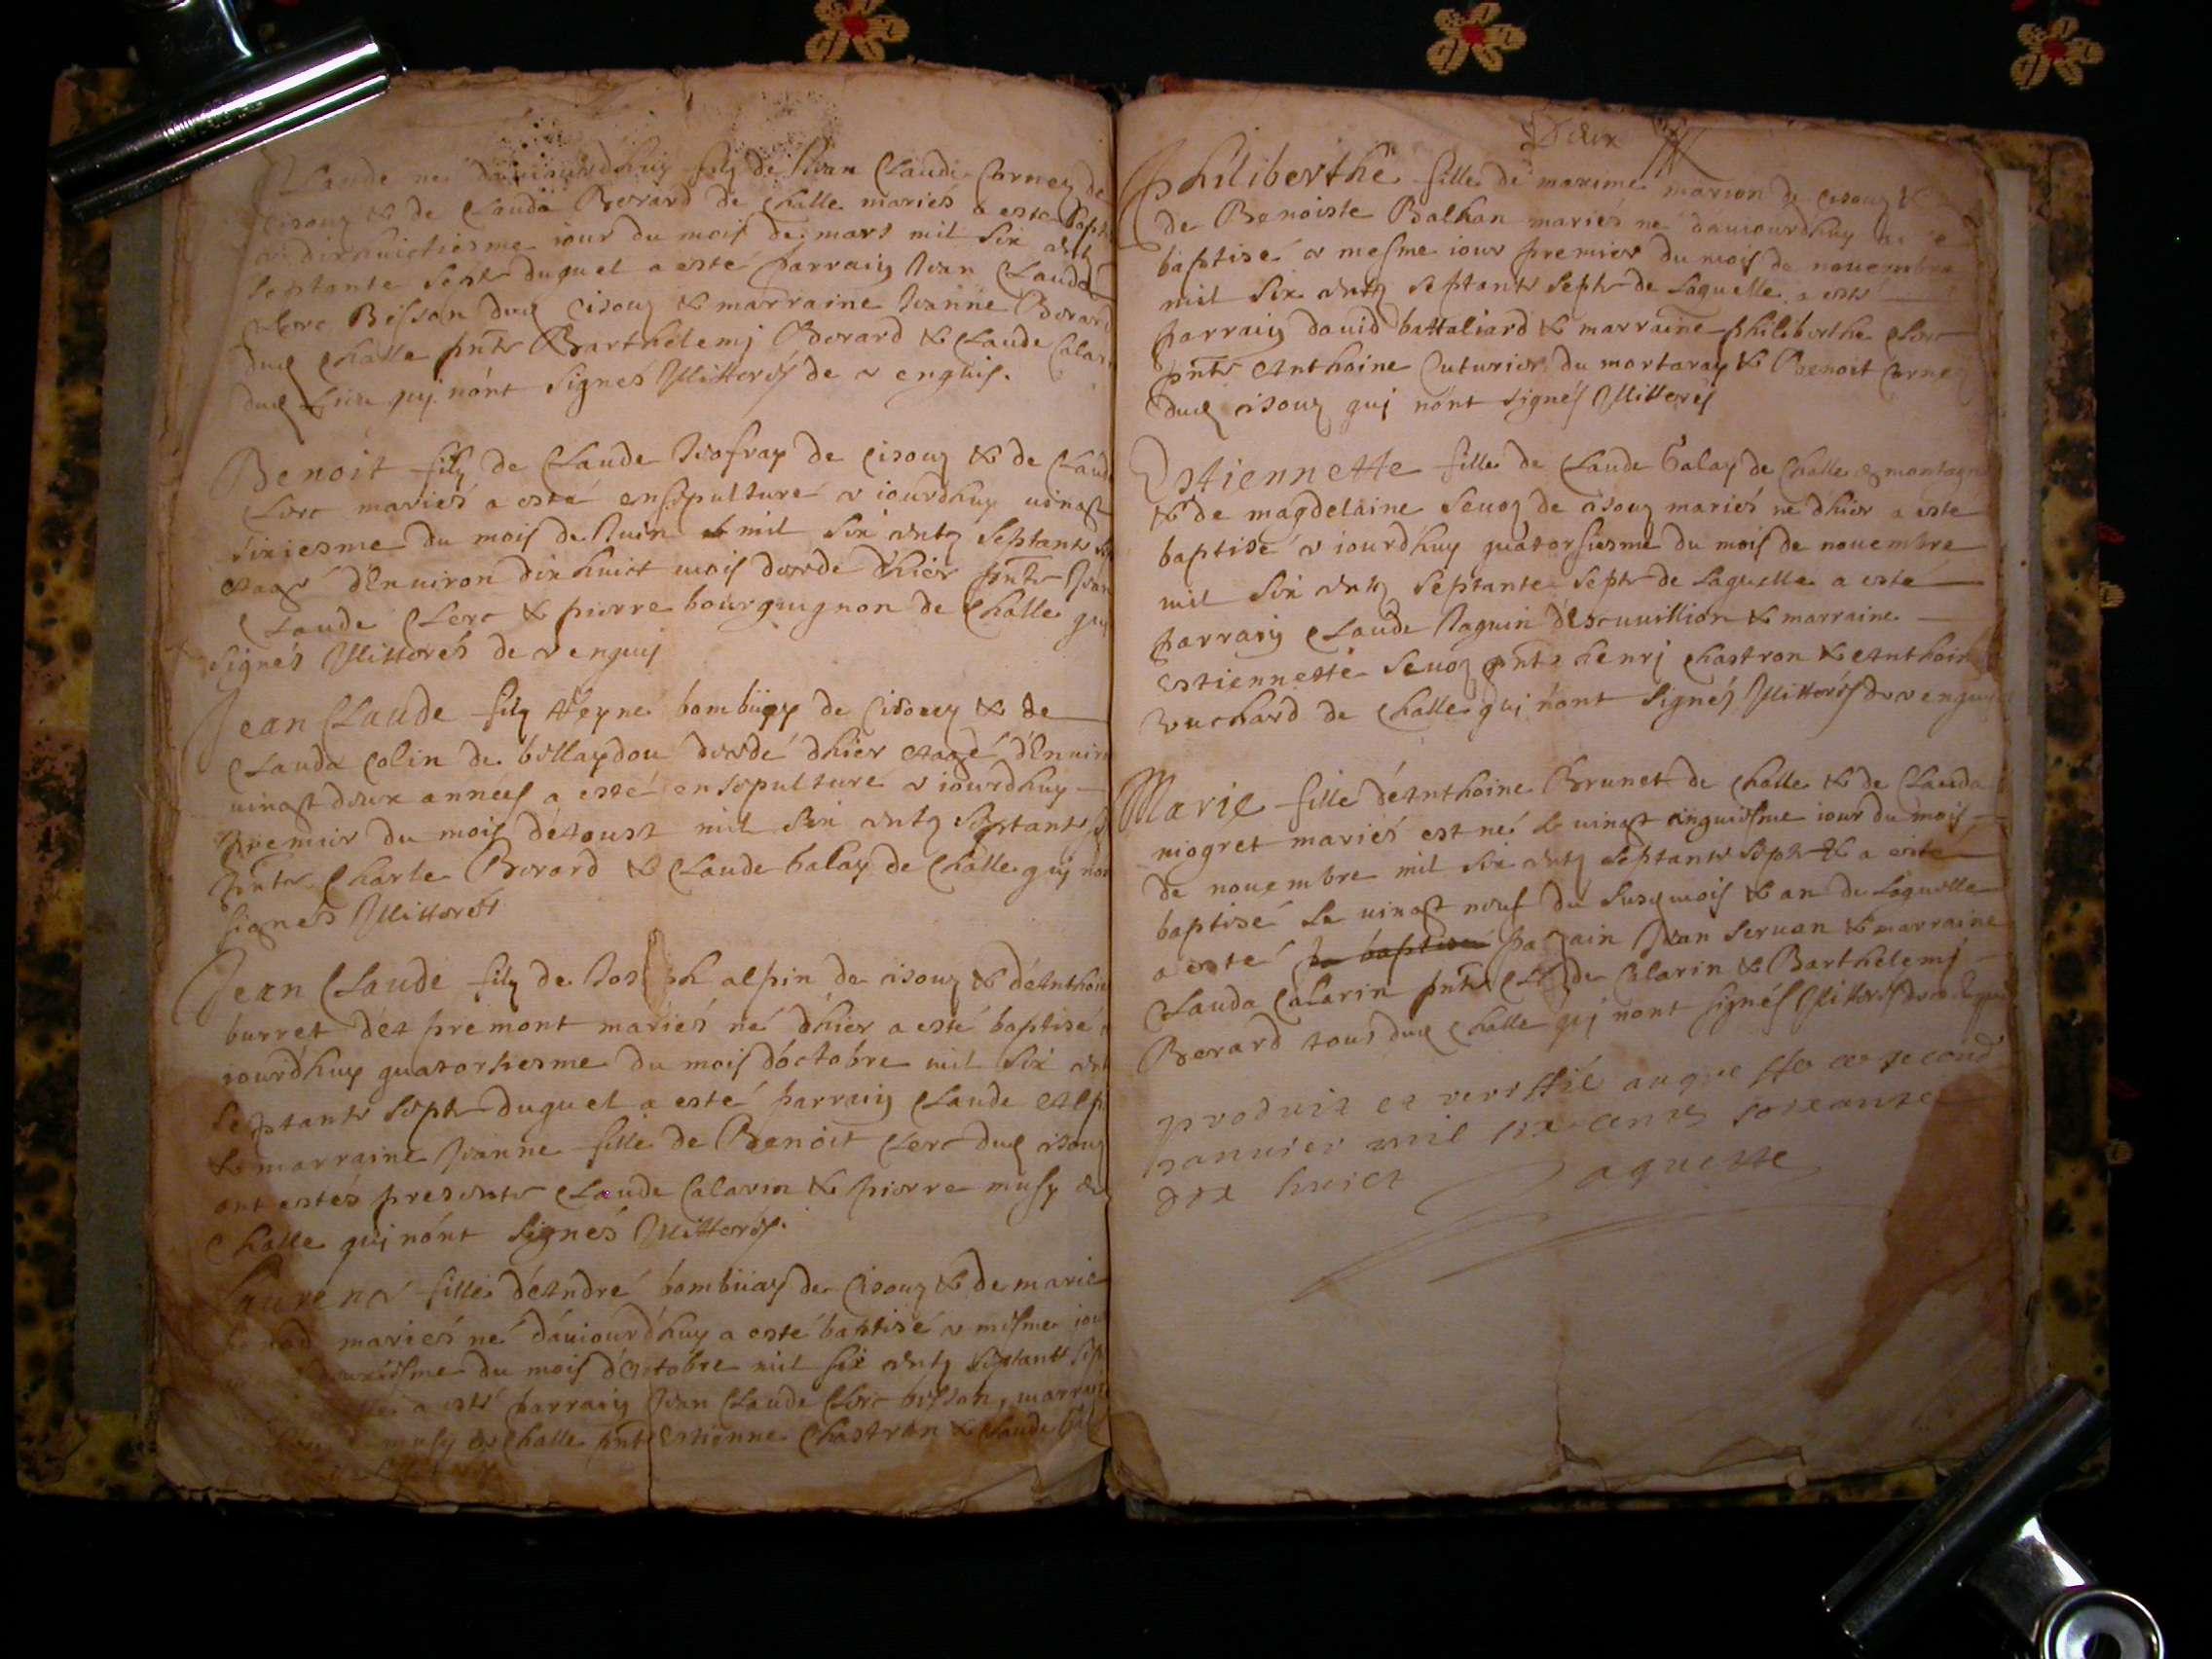 Claude né dauiourdhuy filz de Jean Claude Carney de
Cisouz & de Clauda Berard de Challe mariés a esté bapt
dixhuictiesme iour du mois de mars mil six
septante sept duquel a esté parrain Jean Claude
Clerc Bisson dud Cisouz & marraine Jeanne Berard
dud Challe pnts Barthelemj Berard & Claude Calar
dud lieu quj nónt signés Mitterés de
Benoit filz de Claude de Cisouz & de Claud
Clerc mariés a esté ensepulturé ce iourdhuy uingt
sixiesme du mois de Juin mil six centz septante
aagé d'Enuiron dix huict mois decede d'hier pnts Jean
Claude Clerc & pierre bourguignon de Challe quj
signés Mitterés de
Jean Claude filz de Cisouz & de
Clauda Colin de decedé dhier aagé d'Enuiron
uingt deux annees a esté ensepulture ce iourdhuy
premier du mois d'Aoust mil six centz septante
pnts Charle Berard & Claude balay de Challe quj non
signés Mitterés
Jean Claude filz de Joseph alpin de cisouz & d'Anthoin
burret d'Apremont mariés né dhier a esté baptisé
iourdhuy quatorsiesme du mois d'octobre mil six cent
septante sept duquel a esté parrain Claude Alpi
& marraine Jeanne fille de Benoit Clerc dud cisouz
ont estés presents Claude Calarin & pierre musy de
Challe quj nónt signés Mitterés.
Laurence fille d'André de Cisouz & de marie
mariés né dáuiourdhuy a esté baptisé ce mesme iour
du mois d'Octobre mil six centz septante sept
a esté parrain Jean Claude Clerc bisson, marrain
musy de Challe pnts Estienne Chastron & Claude
Deux
Philiberthe fille de maxime marion de cisouz &
de Benoiste Balhan mariés né dáuiourdhuy
baptisé ce mesme iour premier du mois de nouembre
mil six centz septante sept de laquelle a esté
parrain dauid battaliard & marraine philiberthe Clerc
pnts Anthoine Cuturier du mortaray & Benoit Carney
dud cisouz quj nónt signés Mitterés
Estiennette fille de Claude balay de Challe montagne
& de magdelaine Seuoz de cisouz mariés né dhier a esté
baptisé ce iourdhuy quatorsiesme du mois de nouembre
mil six centz septante sept de laquelle a esté
parrain Claude Jaquin & marraine
Estiennette Seuoz pnts henrj Chastron & Anthoine
de Challe quj nónt signés Mitterés
Marie fille d'Anthoine Brunet de Challe & de Clauda
niogret mariés est né le uingt cinquiesme iour du mois
de nouembre mil six centz septante sept & a esté
baptisé le uingt neuf du susd mois & an de laquelle
a esté parrain Jean Seruan & marraine
Clauda Calarin pnts Claude Calarin & Barthelemj
Berard tous dud Challe quj nont signés Mitterés
produit et veriffié au greffe ce second
januier mil six cents soixante
dix huict Jaquette